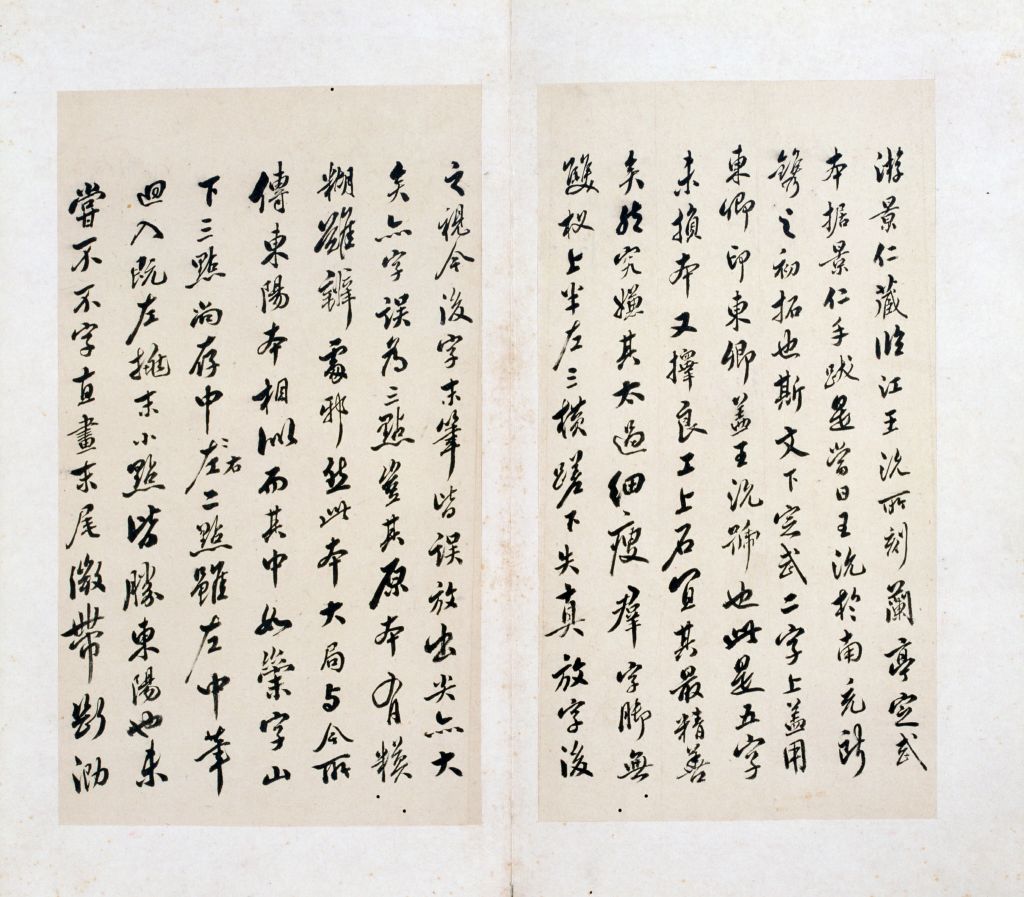 游景仁藏臨江王沇所刻蘭亭定武
本据景仁手跋是當日王沇於南充所
鐫之初拓也斯文下定武二字上蓋用
東卿印東卿蓋王沇號也此是五字
未損本又擇良工上石宜其最精善
矣然究嫌其太過細瘦羣字腳無
雙杈上半左三橫蹉下失真放字後
之視今後字末筆皆誤放出尖亦大
矣亦字誤為三點豈其原本有糢
糊難辨處邪然此本大局与今所
傳東陽本相似而其中如崇字山
下三點尚存中左右二點雖左中筆
迴入既左推末小點皆勝東陽也未
嘗不不字直畫末尾微帶斷泐